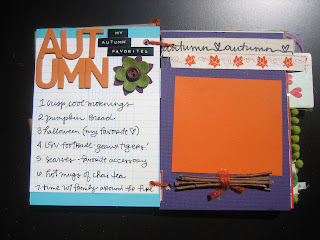 AUTUMN
MY
AUTUMN
FAVORITES
1 crisp, cool mornings
2 pumpkin bread
3 halloween (my favorite ♡)
4 LSU football - geaux tigers!
5 scarves - favorite accessory
6 hot mugs of chai tea
7 time w/ family around the fire
autumn autumn